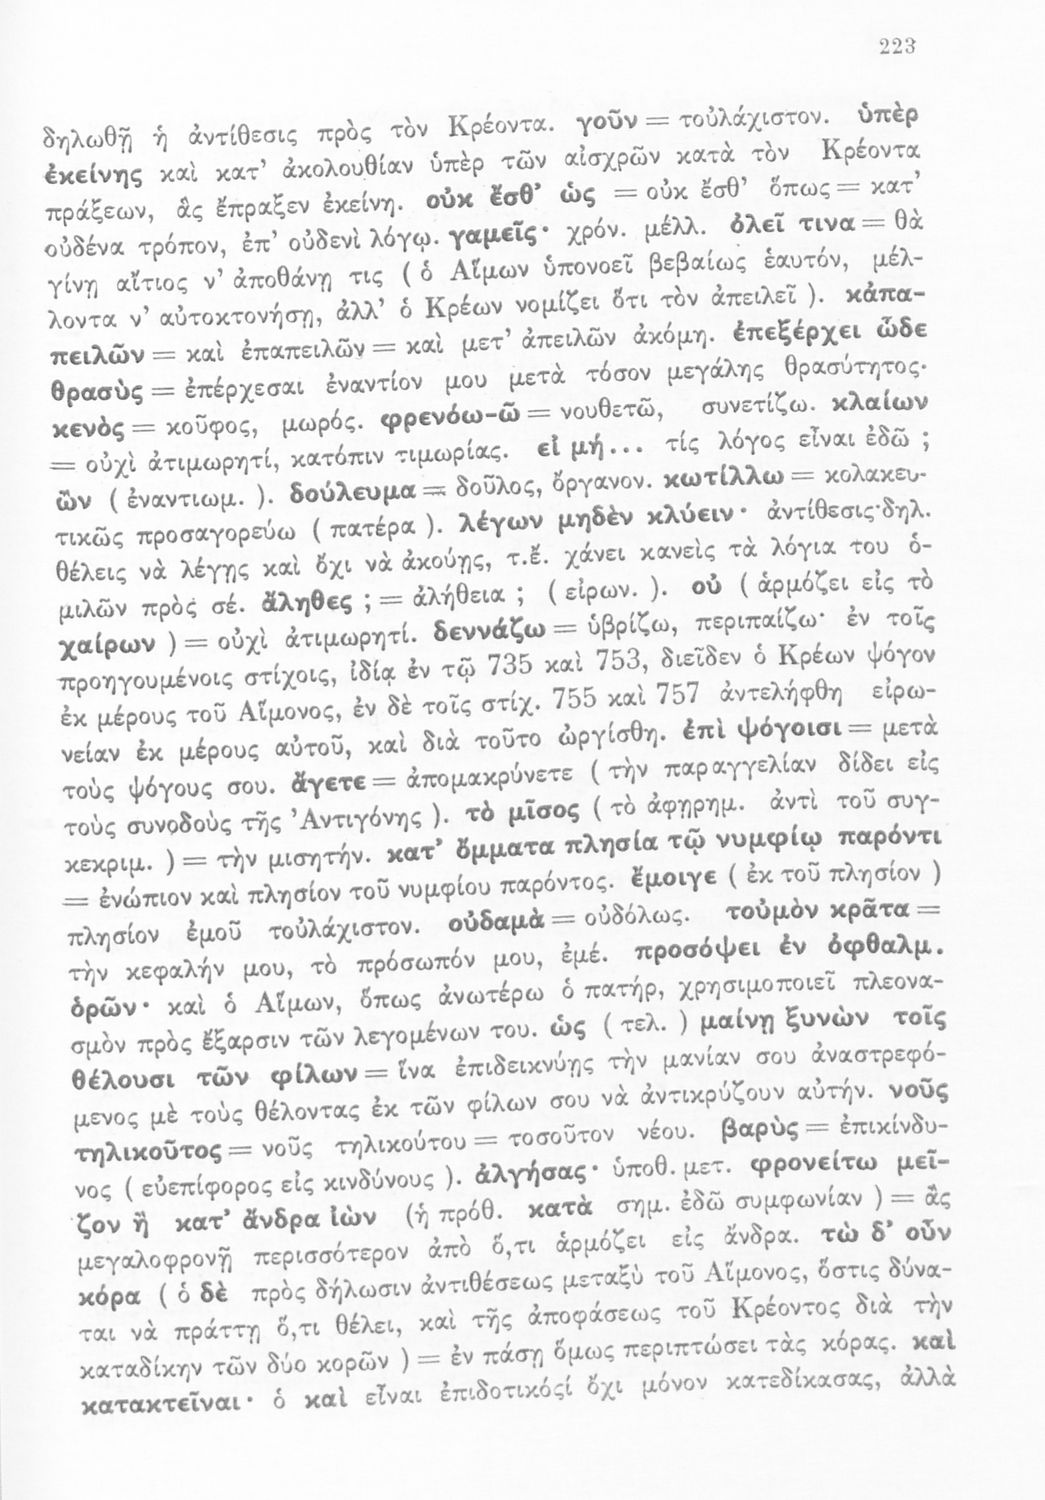 223
δηλωθῇ ἡ ἀντίθεσις πρὸς τὸν Κρέοντα. γοῦν = τοὐλάχιστον. ὑπὲρ
ἐκείνης καὶ κατ’ ἀκολουθίαν ὑπὲρ τῶν αἰσχρῶν κατὰ τὸν Κρέοντα
πράξεων, ἃς ἔπραξεν ἐκείνη. οὐκ ἔσθ’ ὡς = οὐκ ἔσθ’ ὅπως = κατ’
οὐδένα τρόπον, ἐπ’ οὐδενὶ λόγῳ. γαμεῖς· χρόν. μέλλ. ὀλεῖ τινα = θὰ
γίνῃ αἴτιος ν’ ἀποθάνῃ τις ( ὁ Αἵμων ὑπονοεῖ βεβαίως ἑαυτόν, μέλ-
λοντα ν’ αὐτοκτονήσῃ, ἀλλ’ ὁ Κρέων νομίζει ὅτι τὸν ἀπειλεῖ ). κἀπα-
πειλῶν = καὶ ἐπαπειλῶν = καὶ μετ’ ἀπειλῶν ἀκόμη. ἐπεξέρχει ὧδε
θρασὺς = ἐπέρχεσαι ἐναντίον μου μετὰ τόσον μεγάλης θρασύτητος·
κενὸς = κοῦφος, μωρός. φρενόω-ῶ = νουθετῶ, συνετίζω. κλαίων
= οὐχὶ ἀτιμωρητί, κατόπιν τιμωρίας. εἰ μή... τίς λόγος εἶναι ἐδῶ ;
ὢν ( ἐναντιωμ. ). δούλευμα = δοῦλος, ὄργανον. κωτίλλω = κολακευ-
τικῶς προσαγορεύω ( πατέρα ). λέγων μηδὲν κλύειν· ἀντίθεσις·δηλ.
θέλεις νὰ λέγῃς καὶ ὄχι νὰ ἀκούῃς, τ.ἔ. χάνει κανεὶς τὰ λόγια του ὁ-
μιλῶν πρὸς σέ. ἄληθες ; = ἀλήθεια ; ( εἰρων. ). οὐ ( ἁρμόζει εἰς τὸ
χαίρων ) = οὐχὶ ἀτιμωρητί. δεννάζω = ὑβρίζω, περιπαίζω· ἐν τοῖς
προηγουμένοις στίχοις, ἰδίᾳ ἐν τῷ 735 καὶ 753, διεῖδεν ὁ Κρέων ψόγον
ἐκ μέρους τοῦ Αἵμονος, ἐν δὲ τοῖς στίχ. 755 καὶ 757 ἀντελήφθη εἰρω-
νείαν ἐκ μέρους αὐτοῦ, καὶ διὰ τοῦτο ὠργίσθη. ἐπὶ ψόγοισι = μετὰ
τοὺς ψόγους σου. ἄγετε = ἀπομακρύνετε ( τὴν παραγγελίαν δίδει εἰς
τοὺς συνοδοὺς τῆς Ἀντιγόνης ). τὸ μῖσος ( τὸ ἀφῃρημ. ἀντὶ τοῦ συγ-
κεκριμ. ) = τὴν μισητήν. κατ’ ὄμματα πλησία τῷ νυμφίῳ παρόντι
= ἐνώπιον καὶ πλησίον τοῦ νυμφίου παρόντος. ἔμοιγε ( ἐκ τοῦ πλησίον )
πλησίον ἐμοῦ τοὐλάχιστον. οὐδαμὰ = οὐδόλως. τοὐμὸν κρᾶτα =
τὴν κεφαλήν μου, τὸ πρόσωπόν μου, ἐμέ. προσόψει ἐν ὀφθαλμ.
ὁρῶν· καὶ ὁ Αἵμων, ὅπως ἀνωτέρω ὁ πατήρ, χρησιμοποιεῖ πλεονα-
σμὸν πρὸς ἔξαρσιν τῶν λεγομένων του. ὡς ( τελ. ) μαίνῃ ξυνὼν τοῖς
θέλουσι τῶν φίλων = ἵνα ἐπιδεικνύῃς τὴν μανίαν σου ἀναστρεφό-
μενος μὲ τοὺς θέλοντας ἐκ τῶν φίλων σου νὰ ἀντικρύζουν αὐτήν. νοῦς
τηλικοῦτος = νοῦς τηλικούτου = τοσοῦτον νέου. βαρὺς = ἐπικίνδυ-
νος ( εὐεπίφορος εἰς κινδύνους ). ἀλγήσας· ὑποθ. μετ. φρονείτω μεῖ-
ζον ἢ κατ’ ἄνδρα ἰὼν (ἡ πρόθ. κατὰ σημ. ἐδῶ συμφωνίαν ) = ἂς
μεγαλοφρονῇ περισσότερον ἀπὸ ὅ,τι ἁρμόζει εἰς ἄνδρα. τὼ δ’ οὖν
κόρα ( ὁ δὲ πρὸς δήλωσιν ἀντιθέσεως μεταξὺ τοῦ Αἵμονος, ὅστις δύνα-
ται νὰ πράττῃ ὅ,τι θέλει, καὶ τῆς ἀποφάσεως τοῦ Κρέοντος διὰ τὴν
καταδίκην τῶν δύο κορῶν ) = ἐν πάσῃ ὅμως περιπτώσει τὰς κόρας. καὶ
κατακτεῖναι· ὁ καὶ εἶναι ἐπιδοτικόςί ὄχι μόνον κατεδίκασας, ἀλλὰ